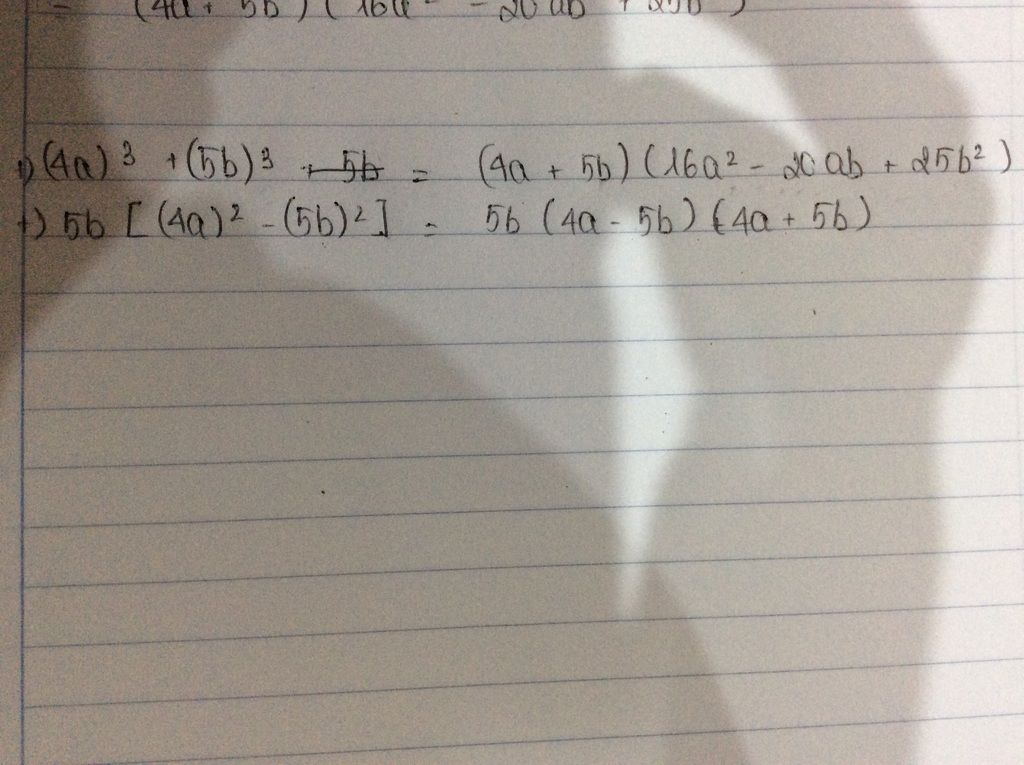 = (4a + 5b) (16a² - 20ab + 25b²)
+) (4a)³ + (5b)³ = (4a + 5b) (16a² - 20ab + 25b²)
+) 5b [(4a)² - (5b)²] = 5b (4a - 5b) (4a + 5b)